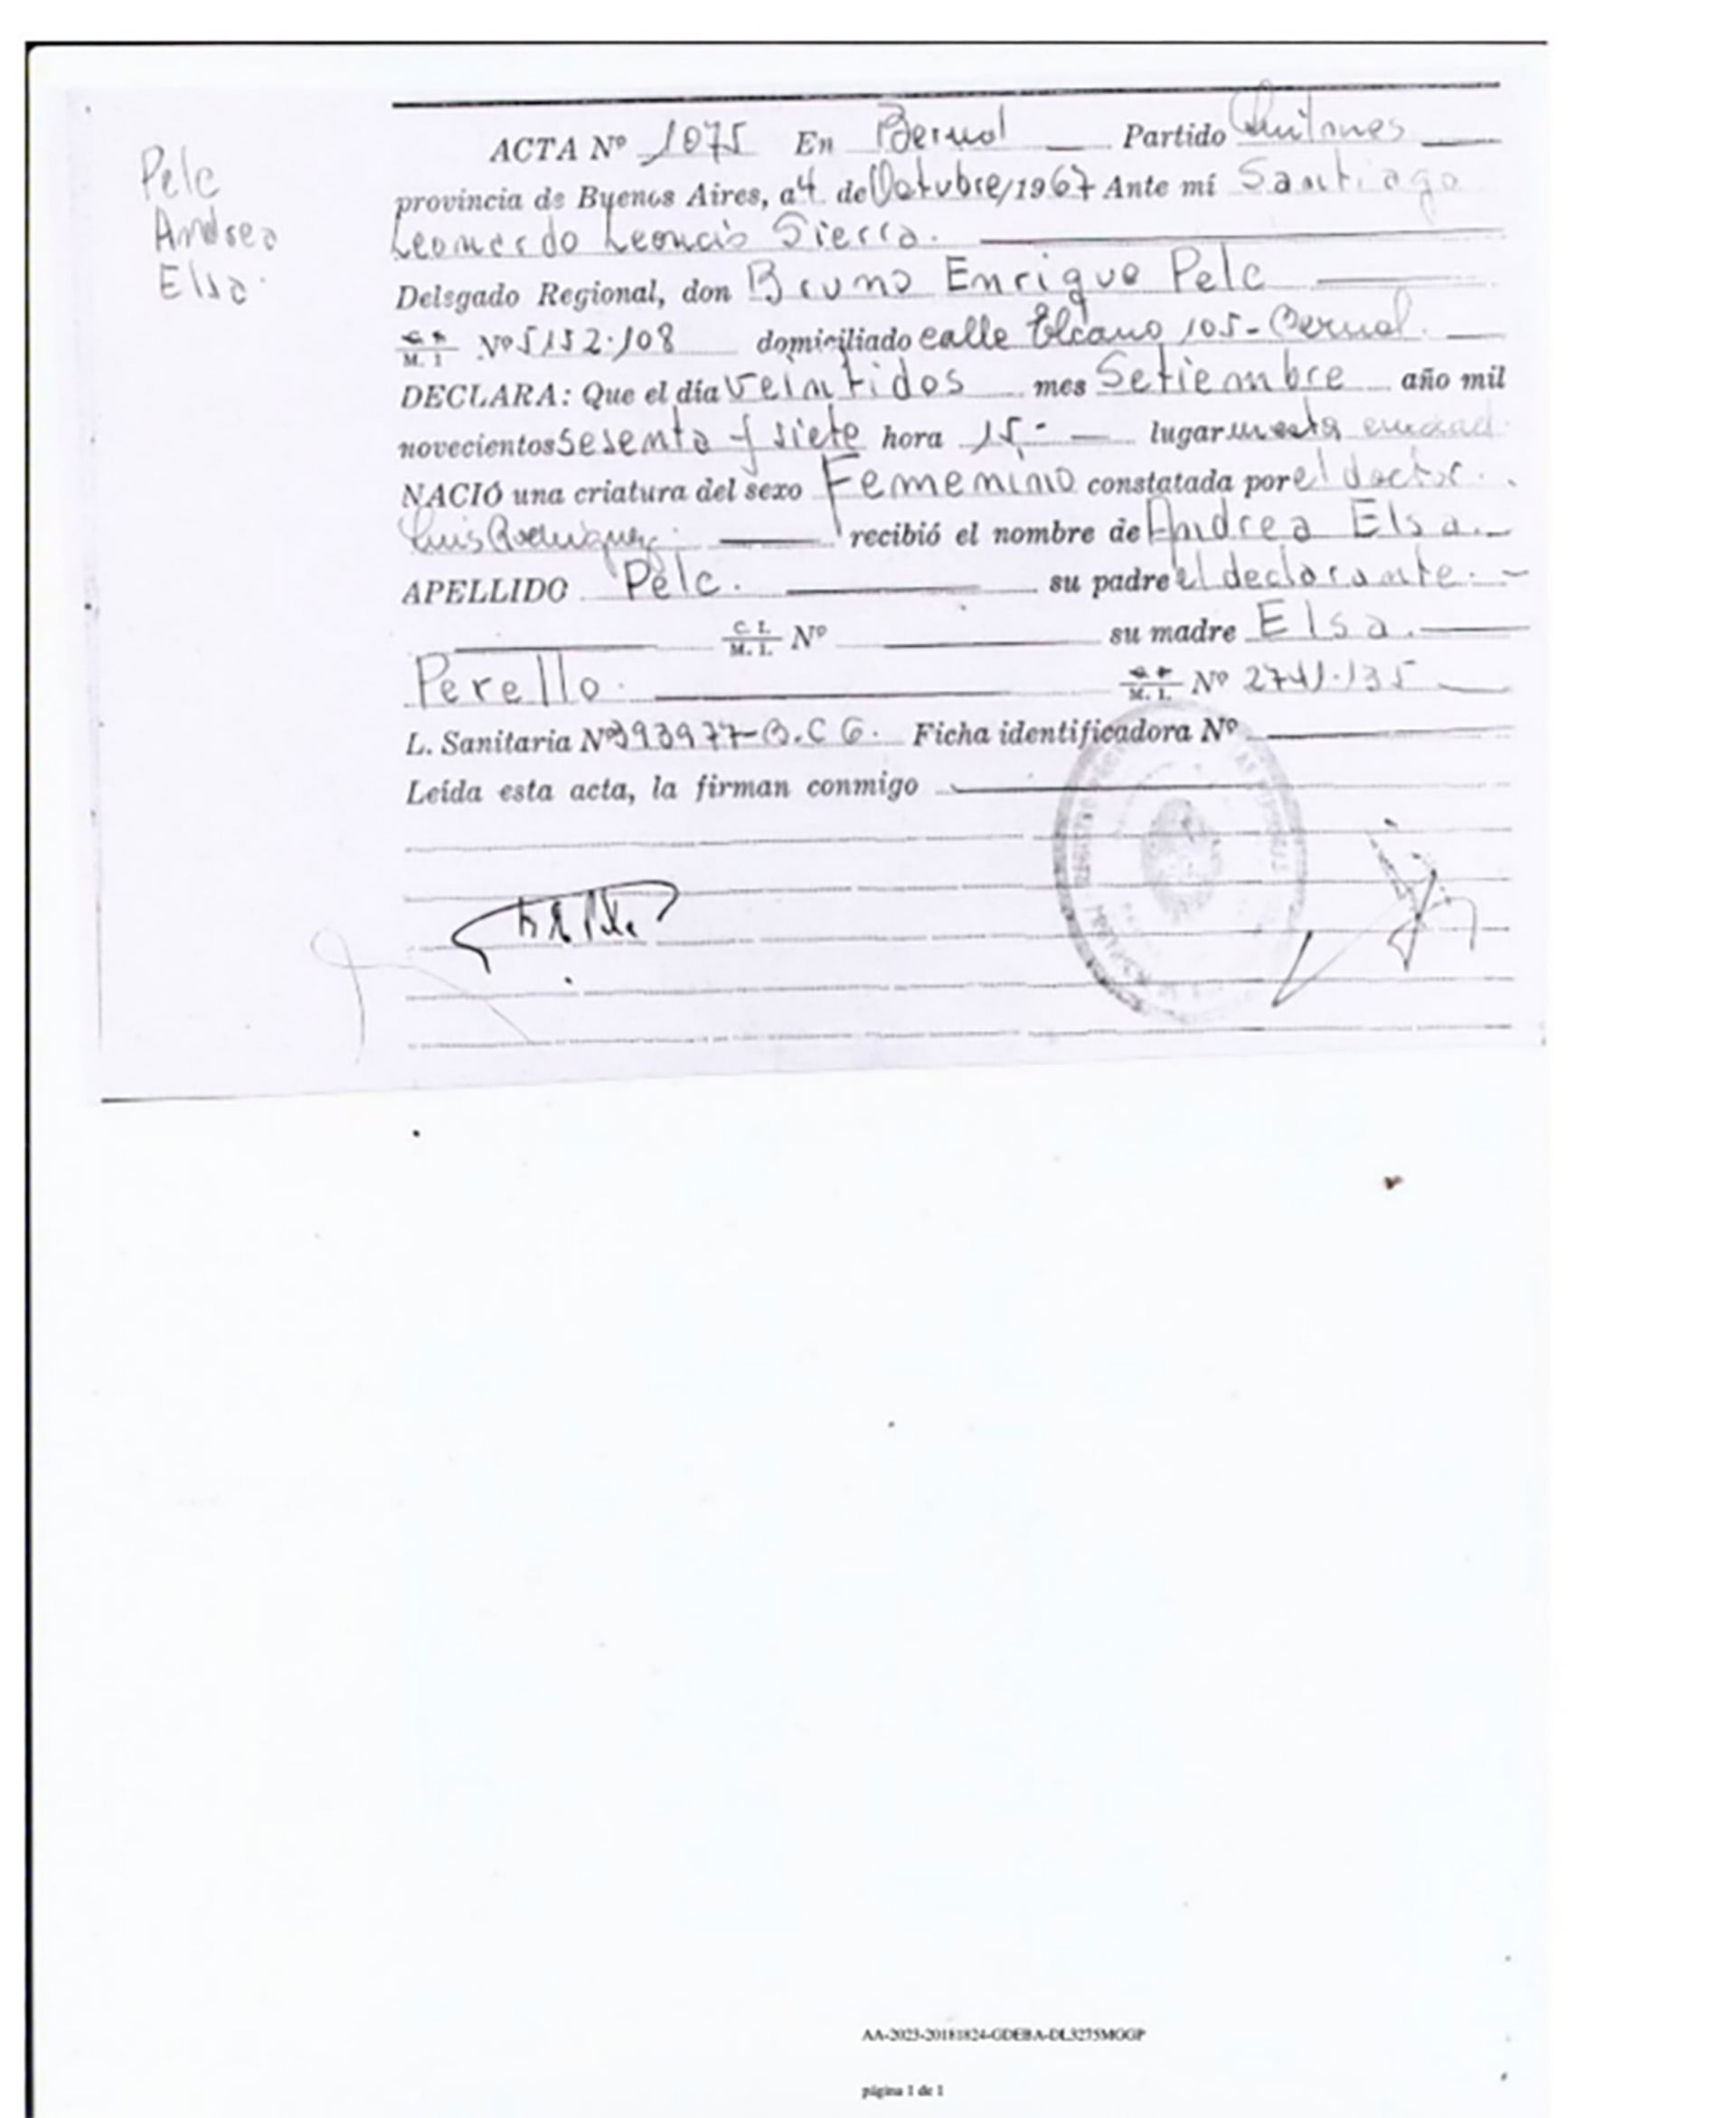 Pelc
Andrea
Elsa.
ACTA Nº 1075 En Bernal Partido Quilmes
provincia de Buenos Aires, a 4 de Octubre/1967 Ante mí Santiago
Leonardo Leoncio Sierra.
Delegado Regional, don Bruno Enrique Pelc
M. I Nº 5152.108 domiciliado calle Elcano 105 - Bernal.
DECLARA: Que el día veintidos mes Setiembre año mil
novecientos sesenta y siete hora 15.- lugar en esta ciudad
NACIÓ una criatura del sexo Femenino constatada por el doctor
Luis Rodriguez recibió el nombre de Andrea Elsa.
APELLIDO Pelc. su padre el declarante.
C. I. M. I. Nº su madre Elsa.
Perello. M. I. Nº
L. Sanitaria Nº B.C.G. Ficha identificadora Nº
Leída esta acta, la firman conmigo
AA-2023-20181824-GDEBA-DL3275MGGP
página 1 de 1